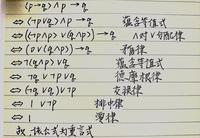 (p→q)∧p →q
⇔ (¬p∨q)∧p →q 蕴含等值式
⇔ (¬p∧p)∨(q∧p) →q ∧对∨分配律
⇔ (0∨(q∧p)) →q 矛盾律
⇔ ¬(q∧p)∨q 蕴含等值式
⇔ ¬q∨¬p∨q 德摩根律
⇔ (¬q∨q)∨¬p 交换律
⇔ 1∨¬p 排中律
⇔ 1 零律
该公式为重言式